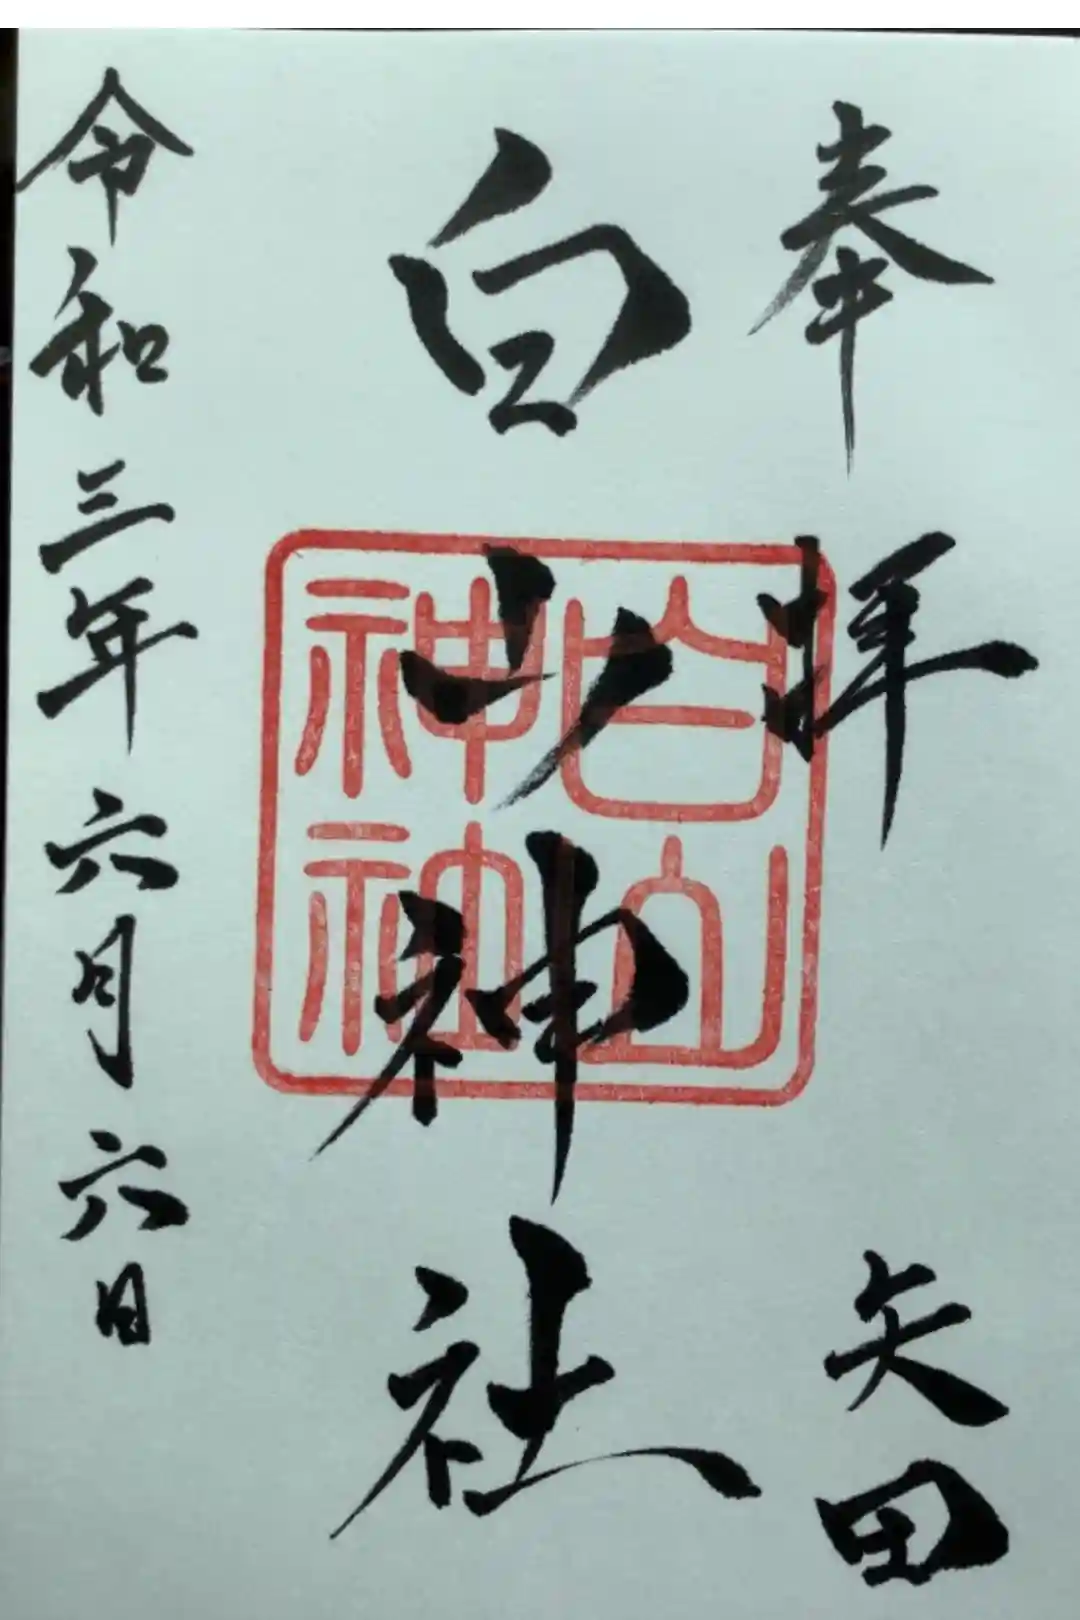 奉拝
矢田
白山神社
白山
神社
令和三年六月六日